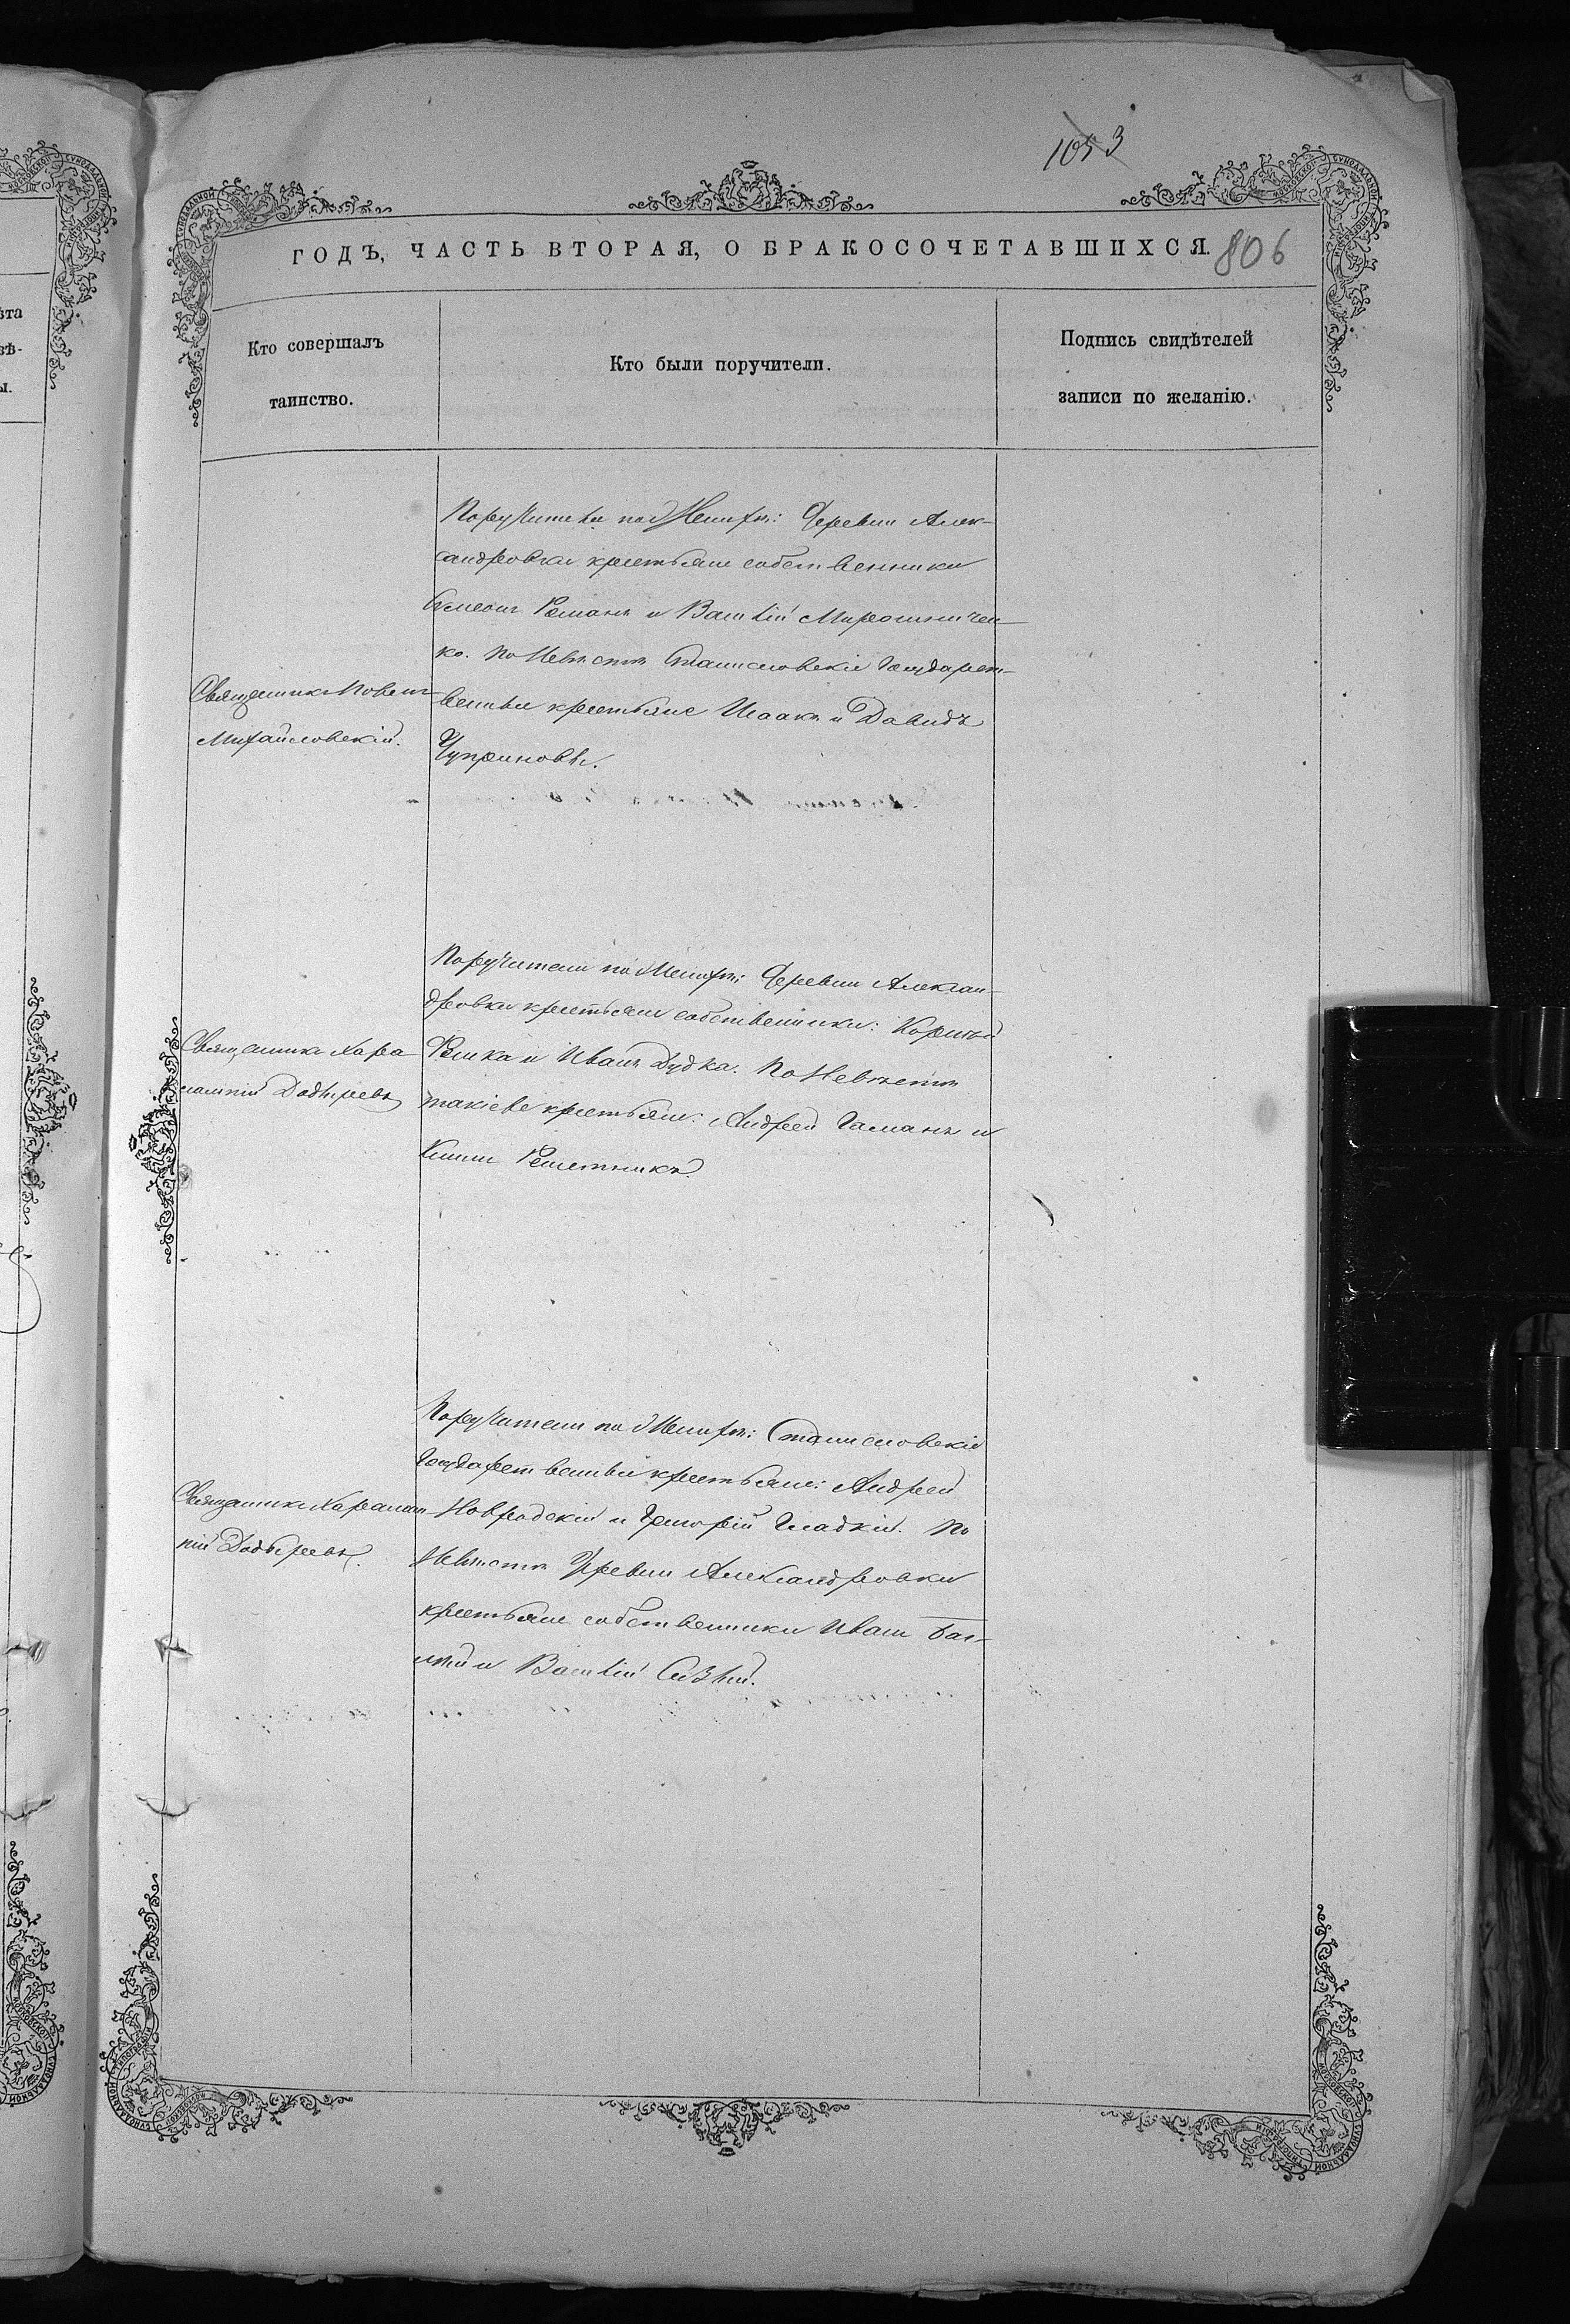 1053
ГОДЪ, ЧАСТЬ ВТОРАЯ, О БРАКОСОЧЕТАВШИХСЯ.
806
Кто совершалъ
таинство.
Кто были поручители.
Подпись свидѣтелей
записи по желанію.
Поручители по Женихѣ: Деревни Алек-
сандровки крестьяне собственники
Романъ и Василій Мирошничен-
ко. По Невѣстѣ Станиславскіе Государст-
венные крестьяне Исаакъ и Давидъ
Чуприновы.
Священникъ
Михайловскій.
Поручители по Женихѣ: Деревни Алексан-
дровки крестьяне собственники: Корнѣй
и Иванъ Дудка. По Невѣстѣ
такіе же крестьяне: Андрей Гаманъ и
Решетникъ.
Священникъ Хара-
лампій
Поручители по Женихѣ: Станиславскіе
Государственные крестьяне: Андрей
Навродскій и Григорій Гладкій. По
Невѣстѣ Деревни Александровки
крестьяне собственники Иванъ
и Василій
Священникъ Харалам-
пій